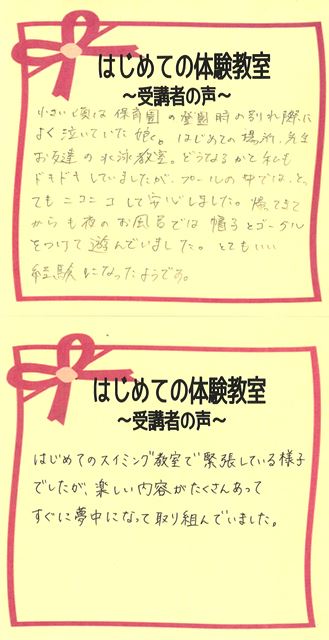 はじめての体験教室
～受講者の声～
小さい頃は保育園の登園時の別れ際に
よく泣いていた娘。はじめての場所、先生
お友達の水泳教室。どうなるかと私も
ドキドキしていましたが、プールの中では、とっ
てもニコニコして安心しました。帰ってきて
からも夜のお風呂では帽子とゴーグル
をつけて遊んでいました。とてもいい
経験になったようです。
はじめての体験教室
～受講者の声～
はじめてのスイミング教室で緊張している様子
でしたが、楽しい内容がたくさんあって
すぐに夢中になって取り組んでいました。